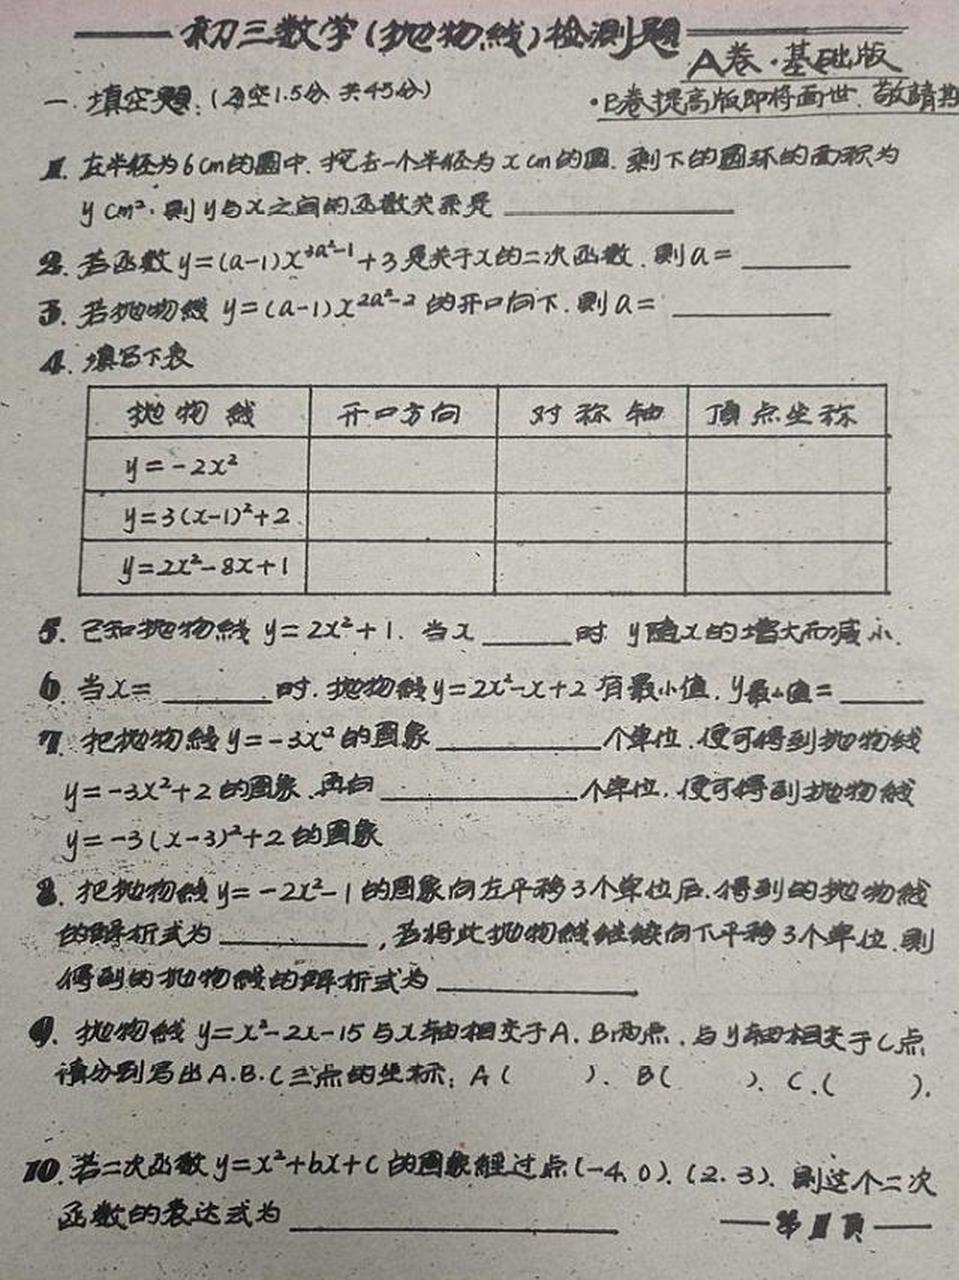 初三数学(抛物線)检测题
A卷·基础版
·B卷提高版即将面世.敬請
一.填空题:(每空1.5分 共45分)
1.在半径为6cm的圆中.挖去一个半径为xcm的圆.剩下的圆环的面积为
ycm².则y与x之间的函数关系是
2.若函数y=(a-1)x^{3a²-1}+3是关于x的二次函数.则a=
3.若抛物線 y=(a-1)x^{2a²-2}的开口向下.则a=
4.填写下表
抛物線 开口方向 对称轴 頂点坐称
y=-2x²
y=3(x-1)²+2
y=2x²-8x+1
5.已知抛物線y=2x²+1.当x 时 y随x的增大而减小.
6.当x= 时.抛物線y=2x²-x+2有最小值.y最小值=
7.把抛物線y=-3x²的图象 个单位.便可得到抛物线
y=-3x²+2的图象.再向 个单位.便可得到抛物線
y=-3(x-3)²+2的图象
8.把抛物線y=-2x²-1的图象向左平移3个单位后.得到的抛物線
的解析式为 ,若将此抛物線继续向下平移3个单位.则
得到的抛物線的解析式为
9.抛物線y=x²-2x-15与x轴相交于A.B两点.与y轴相交于C点
请分别写出A.B.C三点的坐标:A( ).B( ).C.( ).
10.若二次函数y=x²+bx+c的图象經过点(-4,0).(2.3).则这个二次
函数的表达式为
第1頁